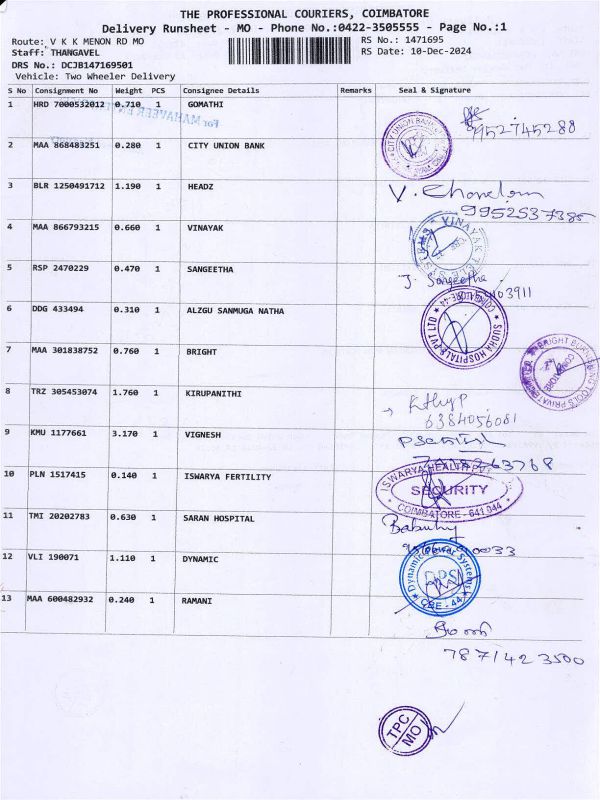 THE PROFESSIONAL COURIERS, COIMBATORE
Delivery Runsheet - MO - Phone No.:0422-3505555 - Page No.:1
Route: V K K MENON RD MO RS No.: 1471695
Staff: THANGAVEL RS Date: 10-Dec-2024
DRS No.: DCJB147169501
Vehicle: Two Wheeler Delivery
S No Consignment No Weight PCS Consignee Details Remarks Seal & Signature
1 HRD 7000532012 0.710 1 GOMATHI
For MAHAVEER
9952745288
2 MAA 868483251 0.280 1 CITY UNION BANK
CITY UNION BANK
3 BLR 1250491712 1.190 1 HEADZ
9952537385
4 MAA 866793215 0.660 1 VINAYAK
VINAYAK
5 RSP 2470229 0.470 1 SANGEETHA
J. Sangeetha
6 DDG 433494 0.310 1 ALZGU SANMUGA NATHA
SUDHA HOSPITALS PVT LTD
COIMBATORE-44
7 MAA 301838752 0.760 1 BRIGHT
BRIGHT BURNISHING TOOLS PRIVATE
8 TRZ 305453074 1.760 1 KIRUPANITHI
6384056081
9 KMU 1177661 3.170 1 VIGNESH
10 PLN 1517415 0.140 1 ISWARYA FERTILITY
ISWARYA HEALTH PVT
SECURITY
COIMBATORE - 641 044
11 TMI 20202783 0.630 1 SARAN HOSPITAL
12 VLI 190071 1.110 1 DYNAMIC
Dynamic Power Systems
DPS
CBE - 44
13 MAA 600482932 0.240 1 RAMANI
7871423500
TPC
MO